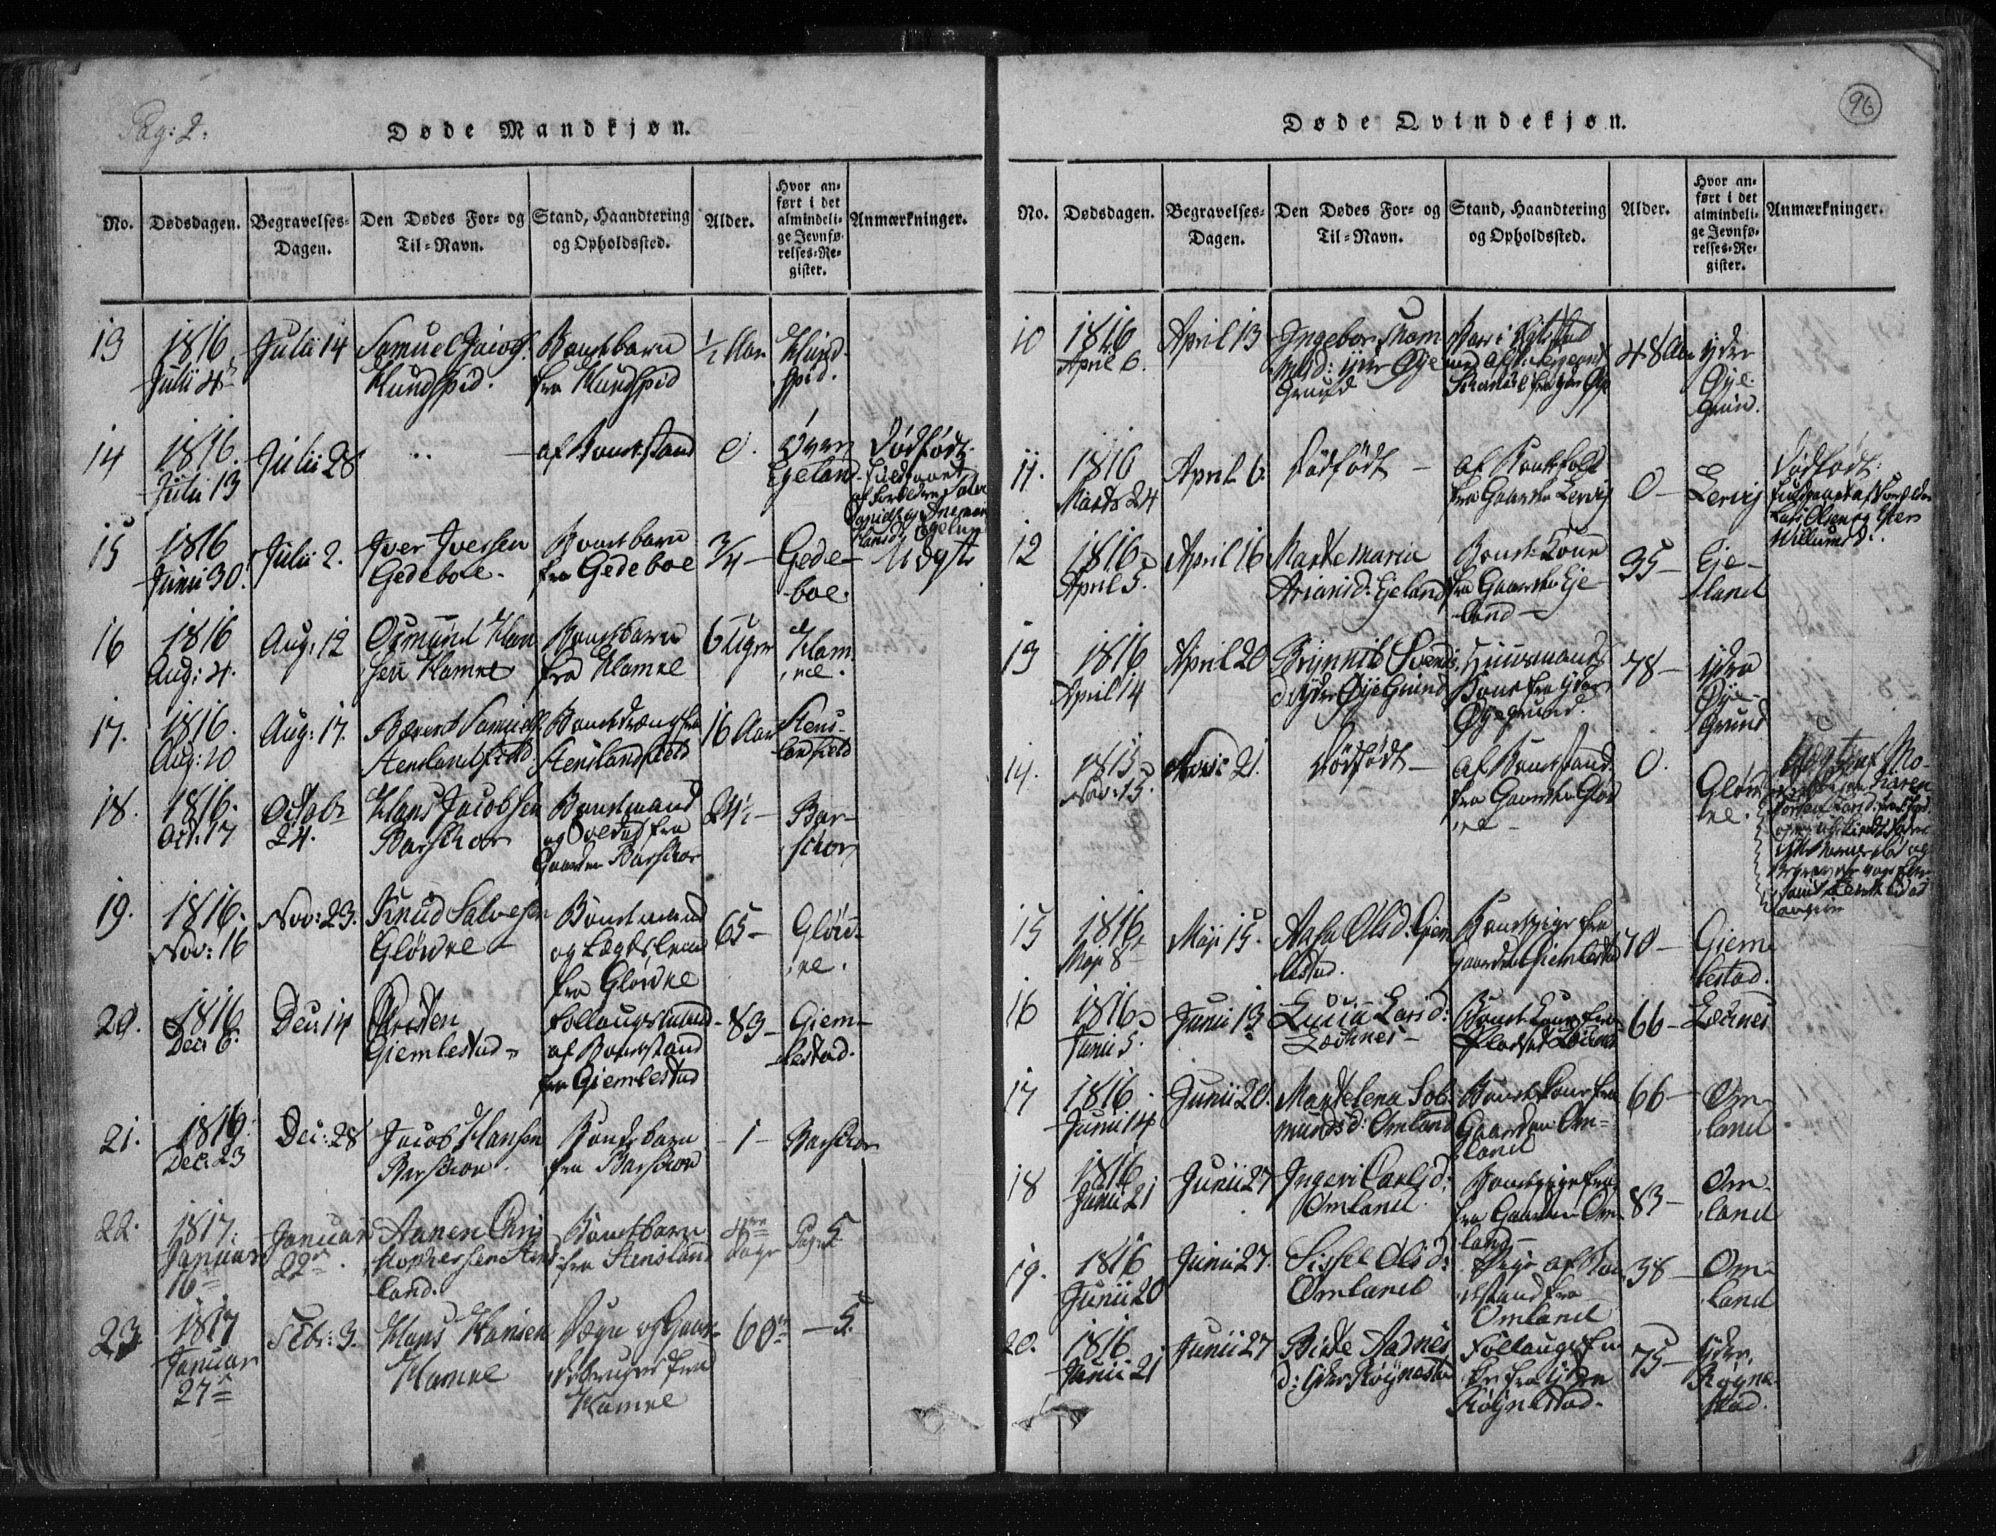 Pag: 2.
Døde Mandkjøn.
No.
Dødsdagen.
Begravelses-
Dagen.
Den Dødes For- og
Til-Navn.
Stand, Haandtering
og Opholdssted.
Alder.
Hvor an-
ført i det
almindeli-
ge Jevnfø-
relses-Re-
gister.
Anmærkninger.
13
1816
Julii 4
Julii 14
Samuel Jacobs.
Hundspid.
Bondebarn
fra Hundspid
1/2 Aar
Hund-
spid.
14
1816.
Julii 13
Julii 28
af Bondestand
0.
Øvre
Egeland
Dødfødt.
15
1816
Junii 30.
Julii 2.
Iver Iversen
Gedeboe.
Bondebarn
fra Gedeboe
3/4 –
Gede-
boe.
Udøbt
16
1816
Aug: 4.
Aug: 12
Osmund Han
sen Hamre
Bondebarn
fra Hamre
6 Uger
Ham
re.
17.
1816.
Aug: 10
Aug: 17.
Berent Samuels.
Stenslandsfield
Bondedreng fra
Stenslandsfield
16 Aar
Stens-
landsfield
18.
1816.
Oct: 17
Octobr
24.
Hans Jacobsen
Barschor
Bondemand
og Soldat fra
Gaarden Barschor
24½ –
Bar-
schor
19.
1816.
Nov: 16
Nov: 23.
Knud Salvesen
Glødne
Bondemand
og Lægdslem
fra Glødne
65 –
Glød-
ne.
20.
1816
Dec: 6.
Dec: 14
Christen
Giemlestad
Follaugsmand
af Bondestand
fra Giemlestad
– 83 –
Giem-
lestad.
21.
1816.
Dec: 23
Dec: 28
Jacob Hansen
Barschor.
Bondebarn
fra Barschor
– 1 –
Barschor
22.
1817.
Januar
16
Januar
22
Aanen Chri
stophersen Stens
land.
Bondebarn
fra Stensland
Dage
Pag: 5
23.
1817
Januar
27
Febr: 3.
Hans Hansen
Hamre
Hamre
60
– 5.
96
Døde Qvindekjøn.
No.
Dødsdagen.
Begravelses-
Dagen.
Den Dødes For- og
Til-Navn.
Stand, Haandtering
og Opholdssted.
Alder.
Hvor an-
ført i det
almindeli-
ge Jevnfø-
relses-Re-
gister.
Anmærkninger.
10
1816
April 6.
April 13
Ingebor Tham
Øye
Grund
48 Aar
Yder
Øye-
Grund.
11.
1816
Marts 24
April 6.
Dødfødt –
af Bondefolk
fra Gaarden Lervig
0 –
Lervig
Dødfødt.
12
1816
April 5.
April 16
Marte Maria
Arianisd: Egeland
Bonde-Kone
fra Gaarden Eje-
land –
35 –
Eje-
land
13
1816
April 14
April 20
Brynnild Svends
d: Yder Øye Grund
Huusmands
Kone fra Yder
Øyegrund.
78 –
Ydre
Øye-
Grund
14.
1815
Nov: 15.
21.
Dødfødt –
af Bondestand
fra Gaarden Glød
ne –
0.
Glød
ne.
15
1816
May 8
May 15.
Aasa Olsd: Giem
lestad.
Bondepige fra
Gaarden Giemlestad
70 –
Giem
lestad.
16
1816
Junii 5.
Junii 13
Lucia Larsd:
Løchnes –
66 –
Løchnes
17
1816
Junii 14
Junii 20.
Martelena Tob
Omland
Bondekone fra
Gaarden Om-
land
66 –
Om-
land
18
1816
Junii 21
Junii 27
Ingeri Carlsd:
Omland
Bondepige fra
fra Gaarden Om
land –
83 –
Om-
land
19.
1816
Junii 20
Junii 27.
Sissel Olsd:
Omland
Pige af Bon
destand fra
Omland
38 –
Om-
land
20.
1816
Junii 21
Junii 27
Birte Aadnes
d: Yder Røynestad
Follaugs En
ke fra Yder
Røynestad.
75 –
Yder
Røyne-
stad.